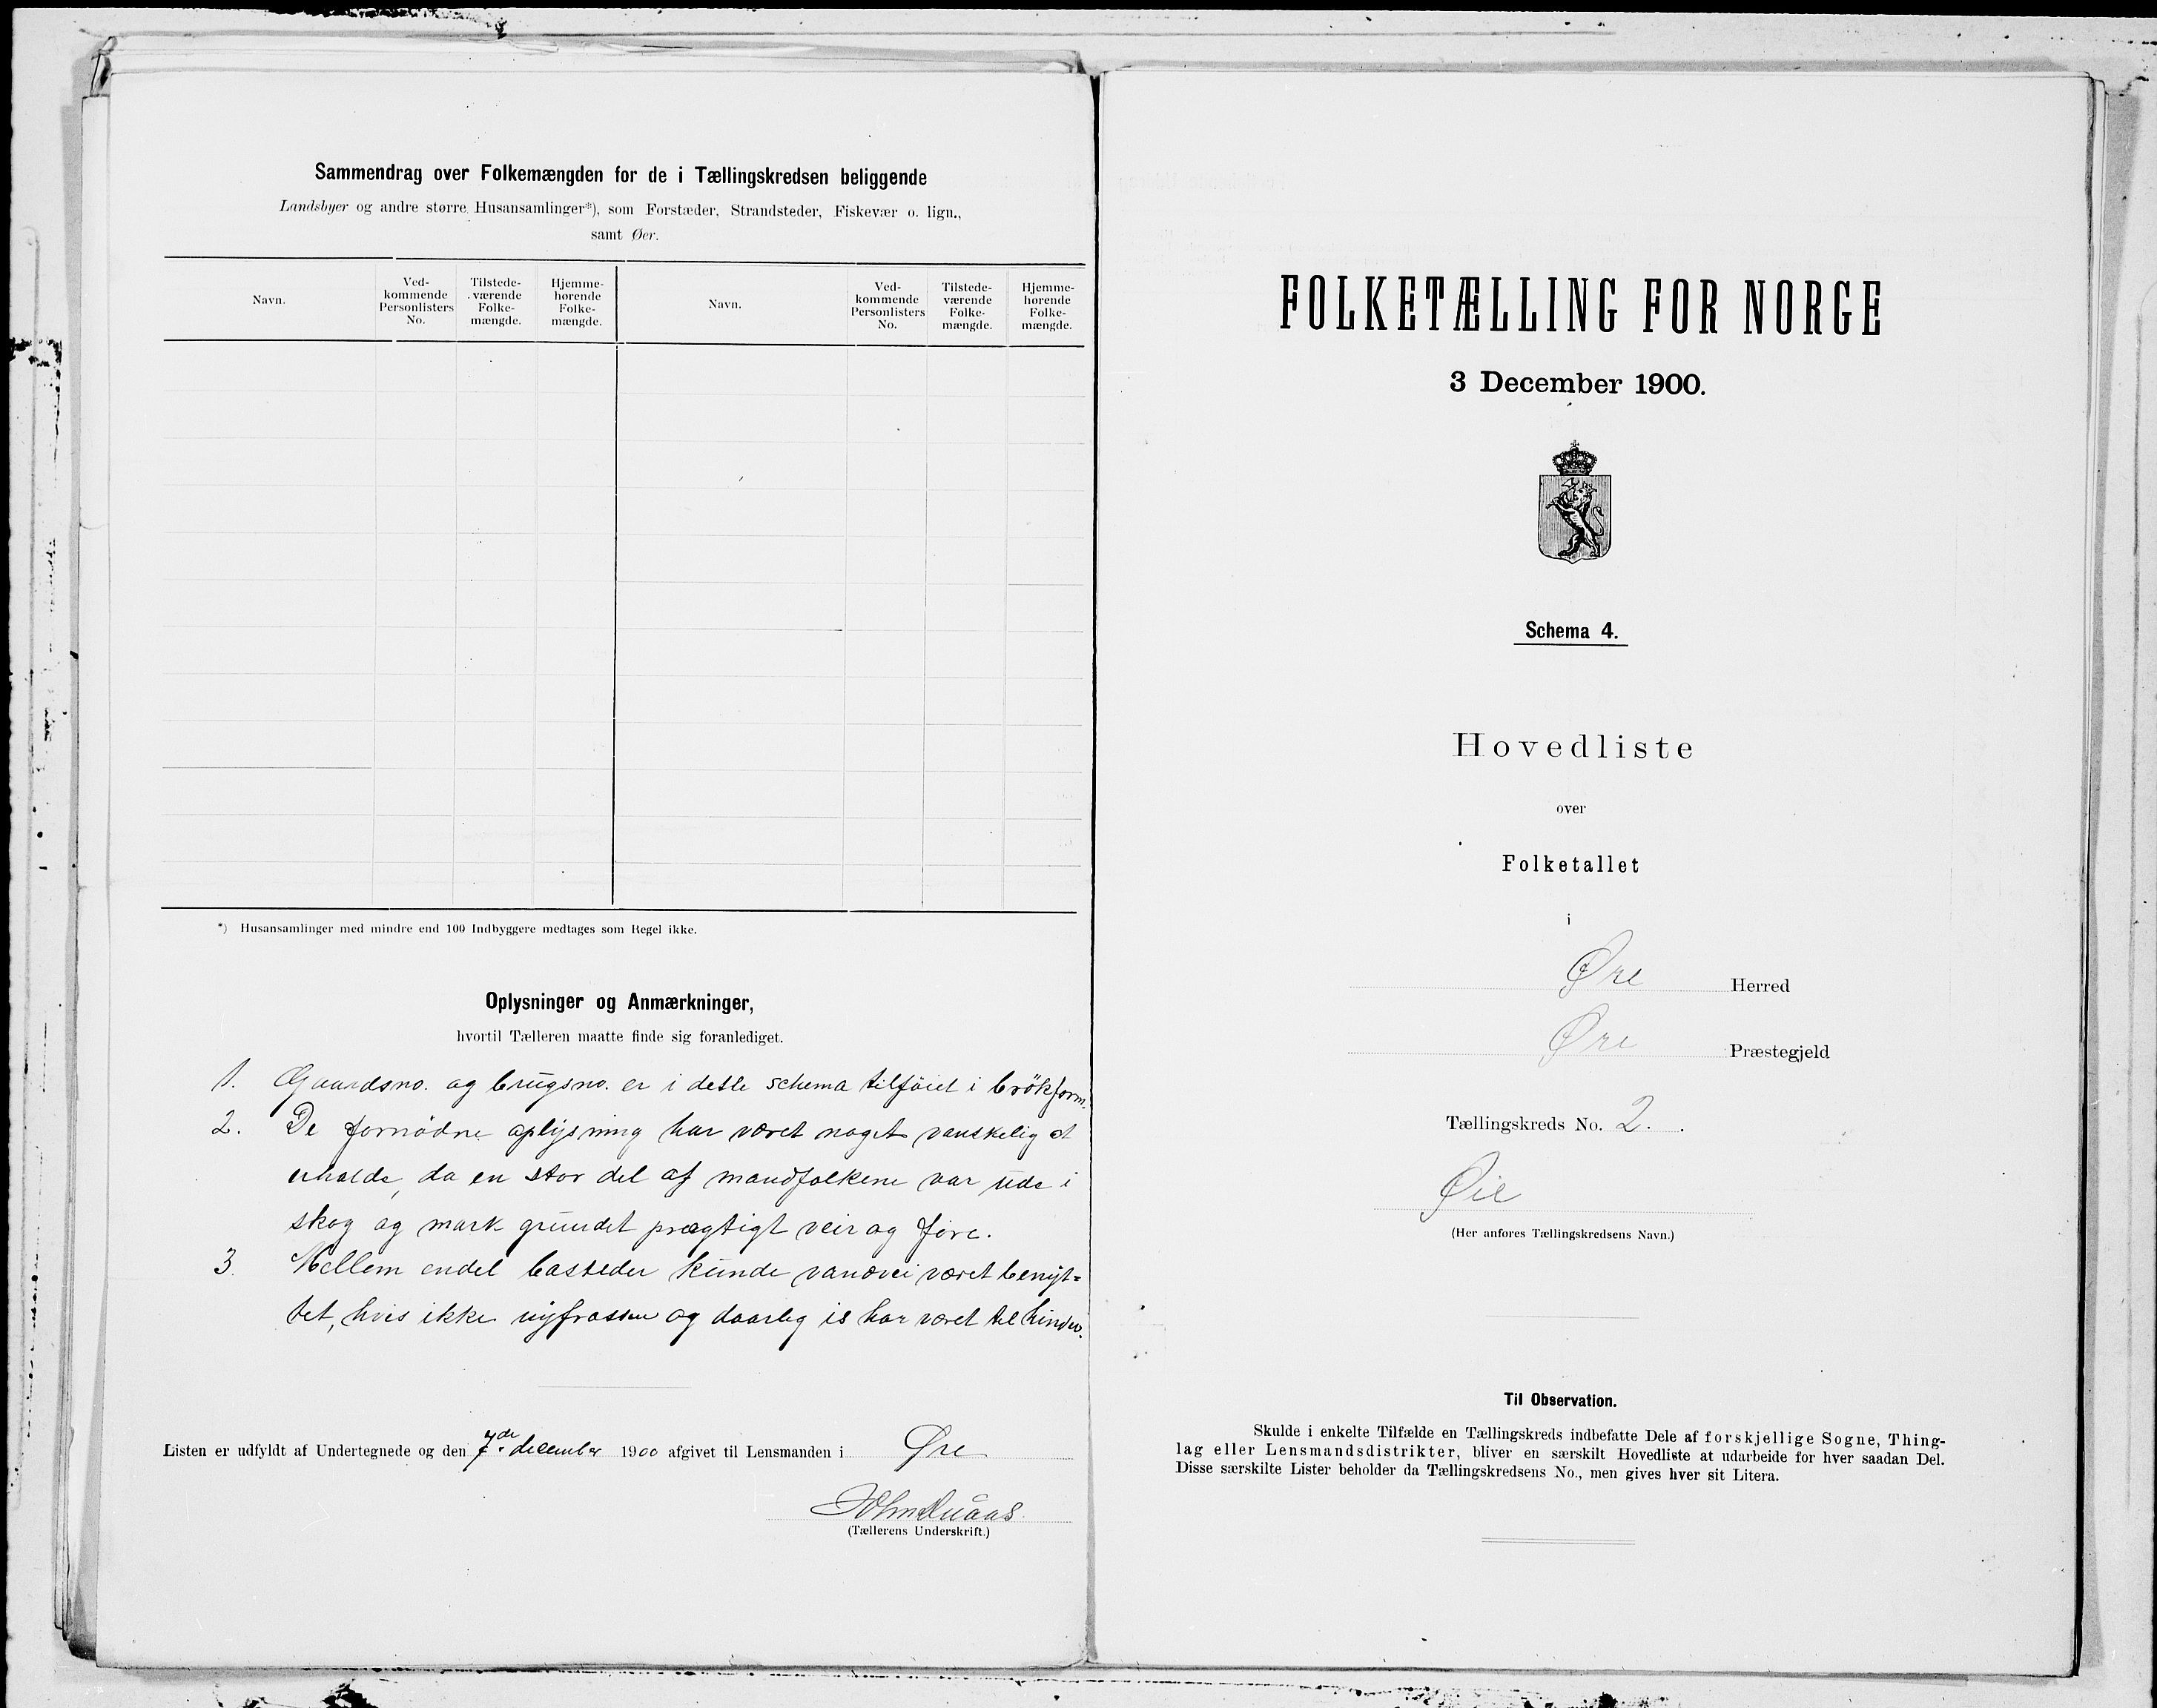 Sammendrag over Folkemængden for de i Tællingskredsen beliggende
Landsbyer og andre større Husansamlinger*), som Forstæder, Strandsteder, Fiskevær o. lign.,
samt Øer.
Navn.
Ved-
kommende
Personlisters
No.
Tilstede-
værende
Folke-
mængde.
Hjemme-
hørende
Folke-
mængde.
Navn.
Ved-
kommende
Personlisters
No.
Tilstede-
værende
Folke-
mængde.
Hjemme-
hørende
Folke-
mængde.
*) Husansamlinger med mindre end 100 Indbyggere medtages som Regel ikke.
Oplysninger og Anmærkninger,
hvortil Tælleren maatte finde sig foranlediget.
1. Gaardsno. og brugsno. er i dette schema tilføiet i brökform.
2. De fornødne oplysning har været noget vanskelig at
erholde, da en stor del af mandfolkene var ude i
skog og mark grundet prægtigt veir og føre.
3. Mellem endel bosteder kunde vandvei været benyt=
tet, hvis ikke nyfrossen og daarlig is har været til hinder.
Listen er udfyldt af Undertegnede og den 7de december 1900 afgivet til Lensmanden i Øre
John
(Tællerens Underskrift.)
FOLKETÆLLING FOR NORGE
3 December 1900.
Schema 4.
Hovedliste
over
Folketallet
i
Øre Herred
Øre Præstegjeld
Tællingskreds No. 2.
Øie
(Her anføres Tællingskredsens Navn.)
Til Observation.
Skulde i enkelte Tilfælde en Tællingskreds indbefatte Dele af forskjellige Sogne, Thing-
lag eller Lensmandsdistrikter, bliver en særskilt Hovedliste at udarbeide for hver saadan Del.
Disse særskilte Lister beholder da Tællingskredsens No., men gives hver sit Litera.